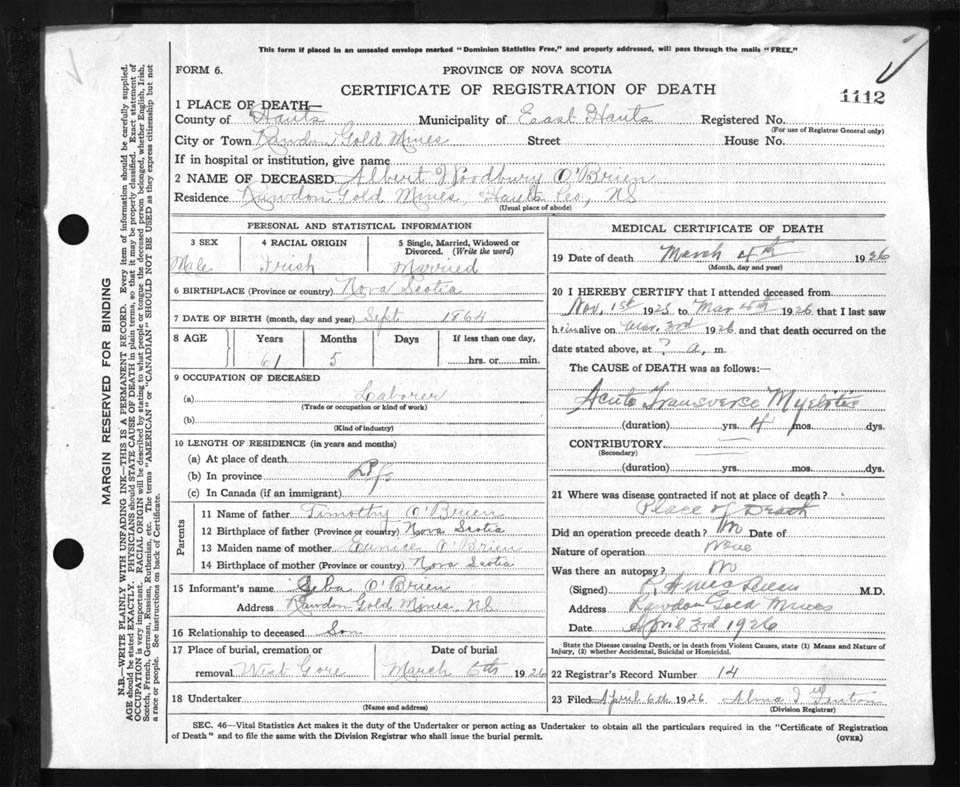 This form if placed in an unsealed envelope marked "Dominion Statistics Free," and properly addressed, will pass through the mails "FREE."
FORM 6.
PROVINCE OF NOVA SCOTIA
CERTIFICATE OF REGISTRATION OF DEATH
1112
1 PLACE OF DEATH—
County of Hants Municipality of East Hants Registered No.
(For use of Registrar General only)
City or Town Rawdon Gold Mines Street House No.
If in hospital or institution, give name
2 NAME OF DECEASED Albert Woodbury O'Brien
Residence Rawdon Gold Mines, Hants Co., NS
(Usual place of abode)
PERSONAL AND STATISTICAL INFORMATION
3 SEX 4 RACIAL ORIGIN 5 Single, Married, Widowed or Divorced. (Write the word)
Male Irish Married
6 BIRTHPLACE (Province or country) Nova Scotia
7 DATE OF BIRTH (month, day and year) Sept 1864
8 AGE Years Months Days If less than one day,
61 5 hrs. or min.
9 OCCUPATION OF DECEASED
(a) Laborer
(Trade or occupation or kind of work)
(b)
(Kind of industry)
10 LENGTH OF RESIDENCE (in years and months)
(a) At place of death
(b) In province Life
(c) In Canada (if an immigrant)
Parents
11 Name of father Timothy O'Brien
12 Birthplace of father (Province or country) Nova Scotia
13 Maiden name of mother Eunice O'Brien
14 Birthplace of mother (Province or country) Nova Scotia
15 Informant's name Seba O'Brien
Address Rawdon Gold Mines, NS
16 Relationship to deceased Son
17 Place of burial, cremation or Date of burial
removal West Gore March 6th 1926
18 Undertaker
(Name and address)
MEDICAL CERTIFICATE OF DEATH
19 Date of death March 4th 1926
(Month, day and year)
20 I HEREBY CERTIFY that I attended deceased from
Nov. 1st 1925 to Mar 4th 1926 that I last saw
him alive on Mar. 3rd 1926 and that death occurred on
date stated above, at ? a. m.
The CAUSE of DEATH was as follows:—
Acute Transverse Myelitis
(duration) yrs. 4 mos. dys.
CONTRIBUTORY
(Secondary)
(duration) yrs. mos. dys.
21 Where was disease contracted if not at place of death?
Place of Death
Did an operation precede death? No Date of
Nature of operation None
Was there an autopsy? No
(Signed) M.D.
Address Rawdon Gold Mines
Date April 3rd 1926
State the Disease causing Death, or in death from Violent Causes, state (1) Means and Nature of Injury, (2) whether Accidental, Suicidal or Homicidal.
22 Registrar's Record Number 14
23 Filed April 6th 1926 Alma
(Division Registrar)
SEC. 46—Vital Statistics Act makes it the duty of the Undertaker or person acting as Undertaker to obtain all the particulars required in the "Certificate of Registration
of Death" and to file the same with the Division Registrar who shall issue the burial permit.
(OVER)
MARGIN RESERVED FOR BINDING
N.B.—WRITE PLAINLY WITH UNFADING INK—THIS IS A PERMANENT RECORD. Every item of information should be carefully supplied.
AGE should be stated EXACTLY. PHYSICIANS should STATE CAUSE OF DEATH in plain terms, so that it may be properly classified. Exact statement of
OCCUPATION is very important. RACIAL ORIGIN will be described by stating to what people or tongue the deceased person belonged, whether English, Irish,
Scotch, French, German, Russian, Ruthenian, etc. The terms "AMERICAN" or "CANADIAN" SHOULD NOT BE USED as they express citizenship but not
a race or people. See instructions on back of Certificate.